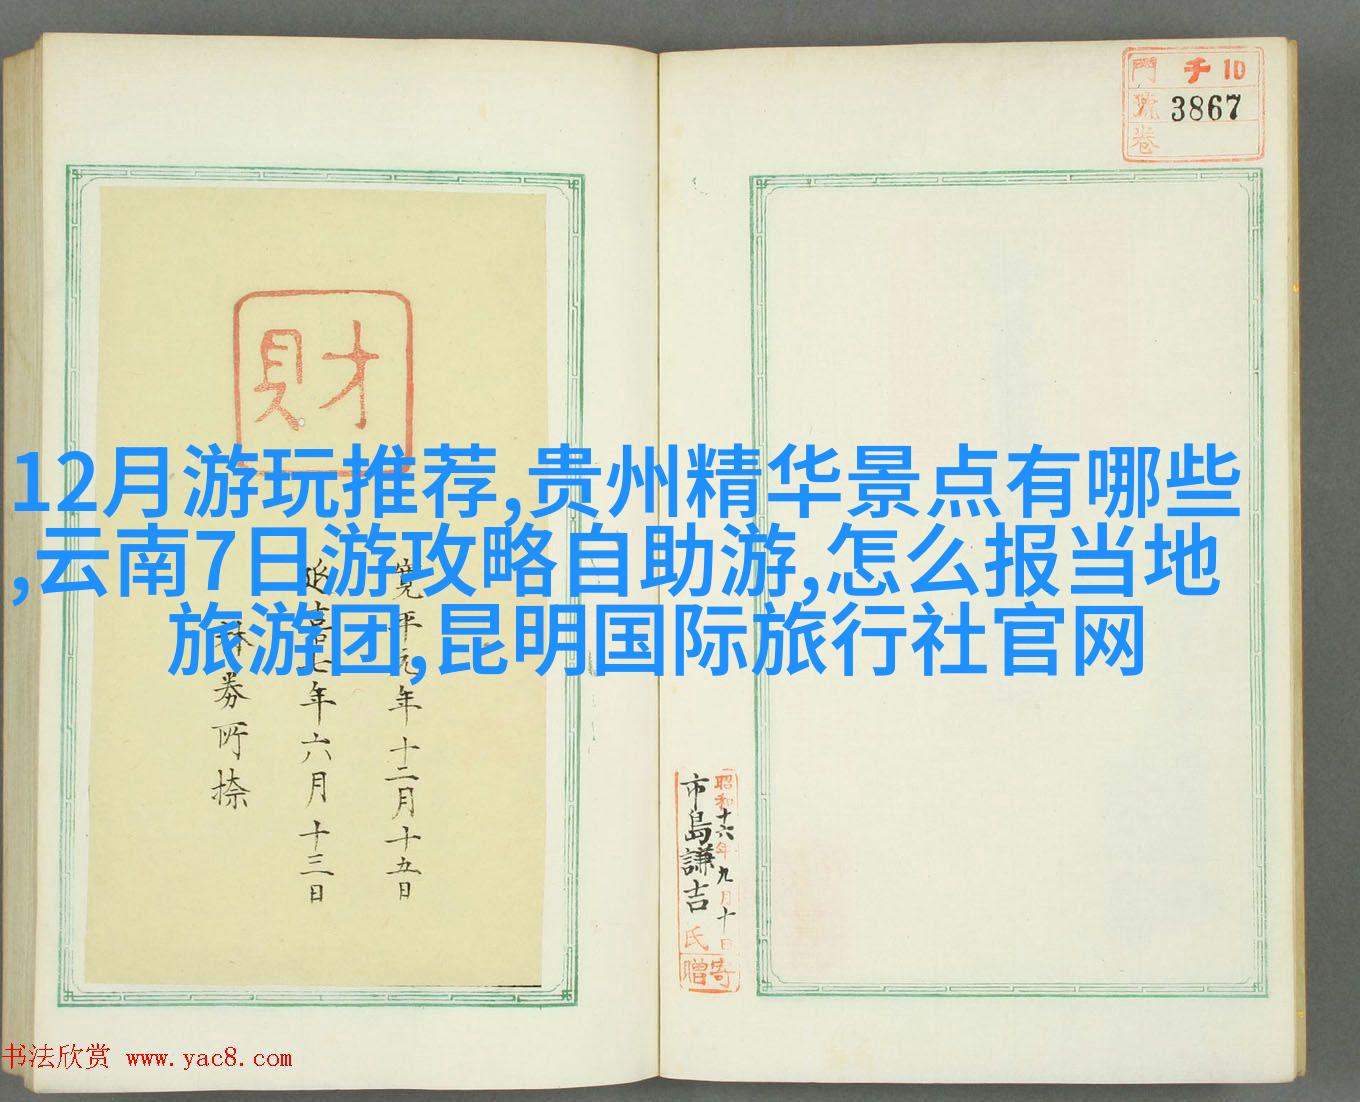 門 千 10
號 3867
卷
財
12月游玩推荐,贵州精华景点有哪些
,云南7日游攻略自助游,怎么报当地
旅游团,昆明国际旅行社官网
寛平元年十二月十五日
延喜七年六月十三日
券所捺
昭和十六年九月十日
市島謙吉氏
寄贈
书法欣赏 www.yac8.com